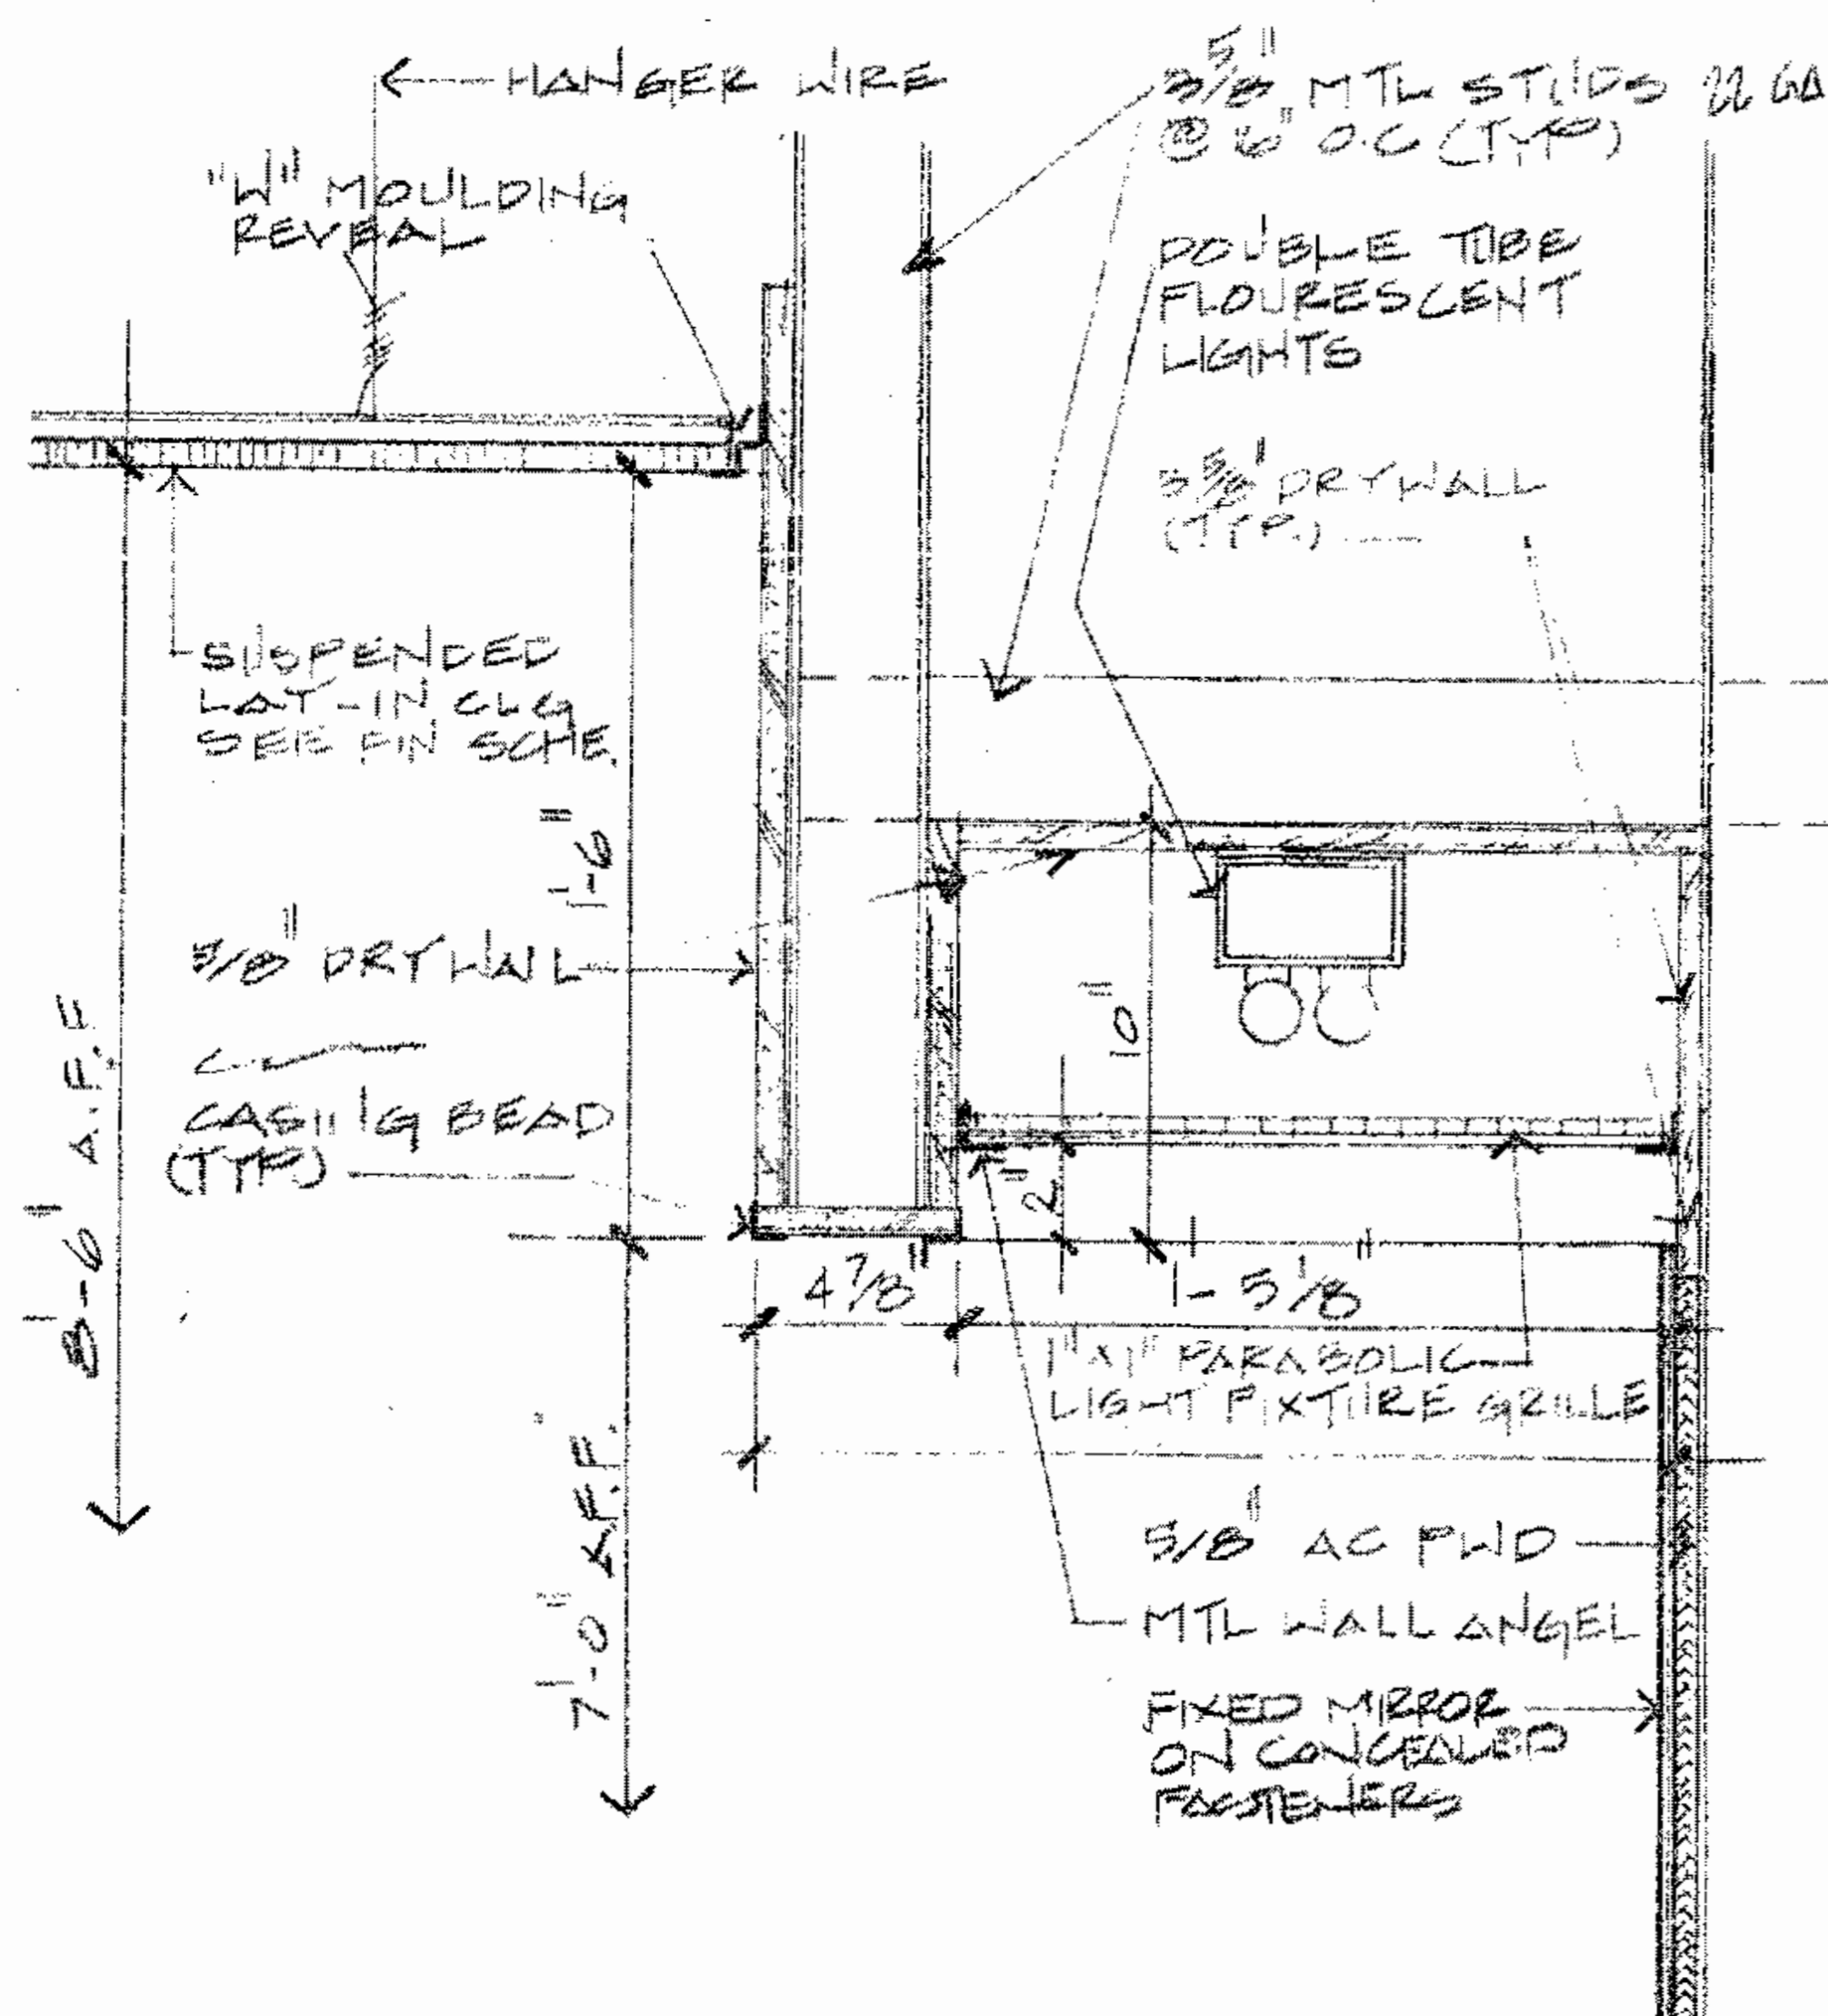 HANGER WIRE
"W" MOULDING
REVEAL
3 5/8" MTL STUDS 22 GA
@ 16" O.C (TYP)
DOUBLE TUBE
FLOURESCENT
LIGHTS
5/8" DRYWALL
(TYP.)
SUSPENDED
LAY-IN CLG
SEE FIN SCHE.
1'-6"
5/8" DRYWALL
CASING BEAD
(TYP)
8'-6" A.F.F
10"
2"
4 7/8"
1'-5 1/8"
1"X1" PARABOLIC
LIGHT FIXTURE GRILLE
7'-0" A.F.F.
5/8" AC PWD
MTL WALL ANGEL
FIXED MIRROR
ON CONCEALED
FASTENERS